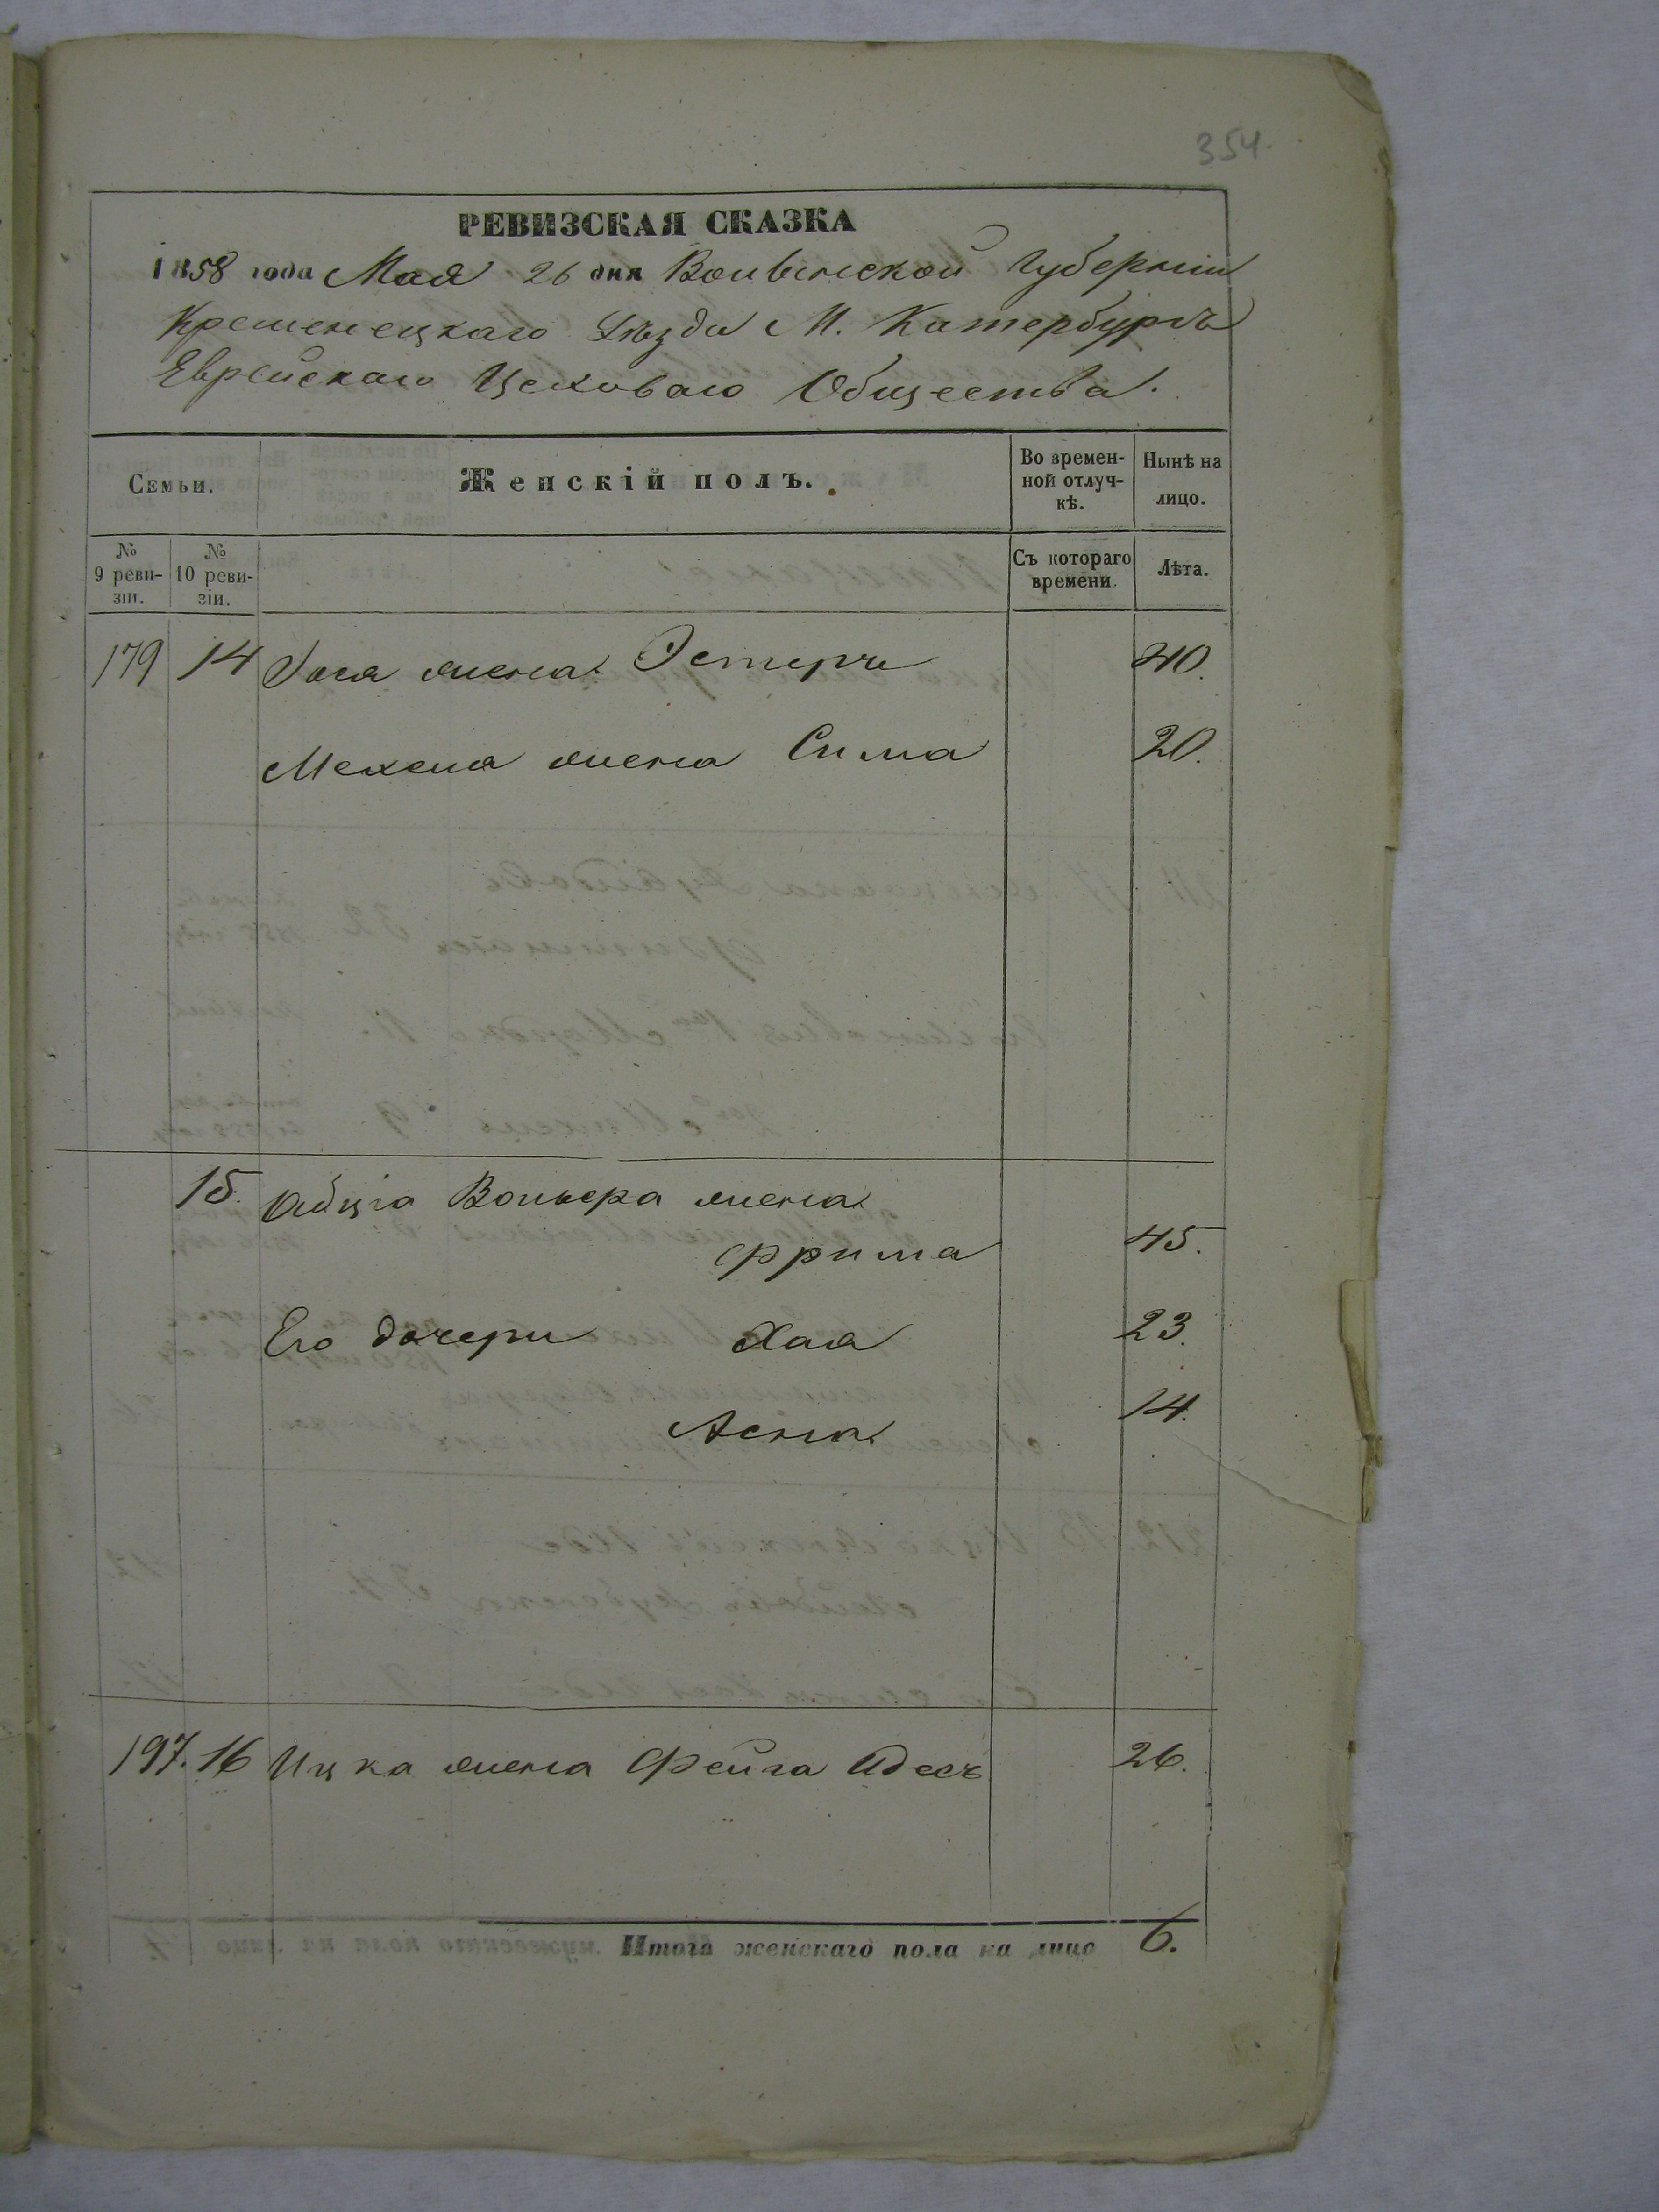 354.
РЕВИЗСКАЯ СКАЗКА
1858 года Мая 26 дня Волынской Губернии
Кременецкаго Уѣзда М. Катербургъ
Еврейскаго Цеховаго Общества.
Семьи. Женскій полъ. Во времен-ной отлуч-кѣ. Нынѣ на лицо.
№ 9 реви-зіи. № 10 реви-зіи. Съ котораго времени. Лѣта.
179 14 жена Эстеръ 40.
Мехеля жена Сима 20.
15. Абуга Вольвера жена
Фрима 45.
Его дочери Хая 23.
Асна 14.
197. 16 Ицка жена Фейга Адесъ 26.
Итого женскаго пола на лицо 6.